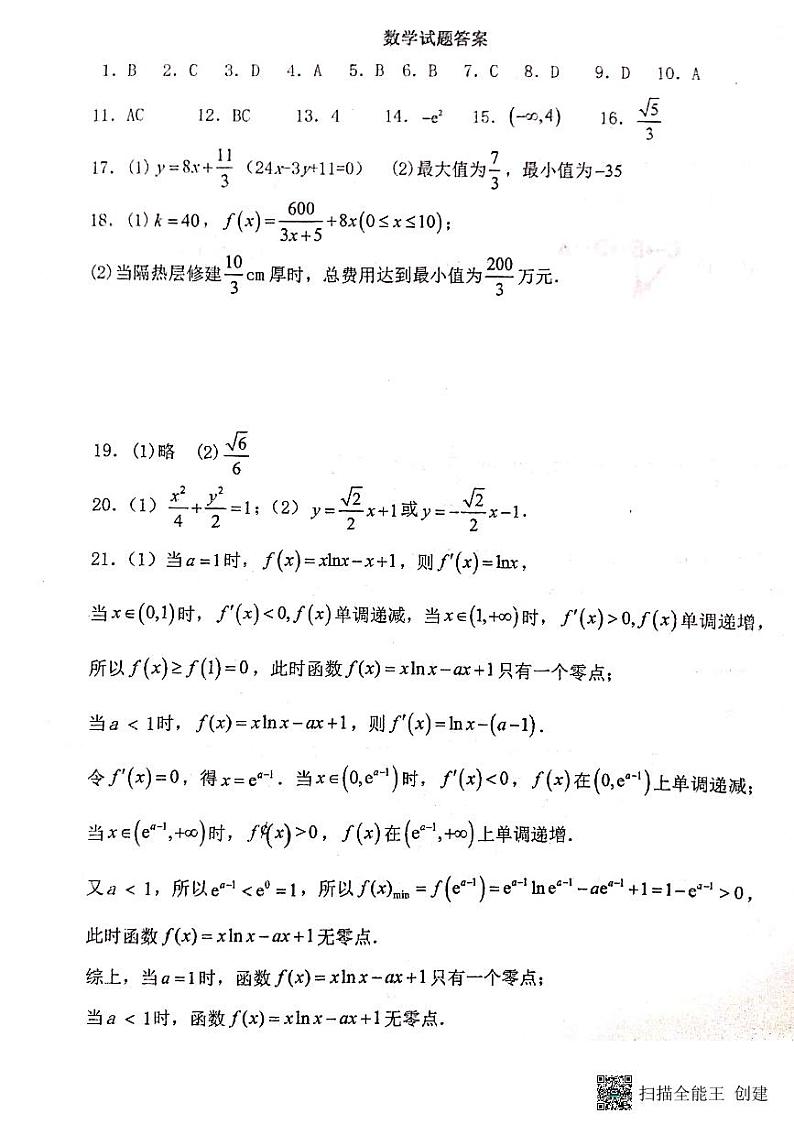 数学试题答案
1. B 2. C 3. D 4. A 5. B 6. B 7. C 8. D 9. D 10. A
11. AC 12. BC 13. 4 14. -e² 15. (-∞,4) 16. √5/3
17. (1) y=8x+11/3 (24x-3y+11=0) (2)最大值为7/3，最小值为-35
18. (1) k=40，f(x)=600/(3x+5)+8x(0≤x≤10)；
(2)当隔热层修建10/3cm厚时，总费用达到最小值为200/3万元.
19. (1)略 (2)√6/6
20.（1）x²/4+y²/2=1；（2）y=√2/2x+1或y=-√2/2x-1.
21.（1）当a=1时，f(x)=xlnx-x+1，则f′(x)=lnx，
当x∈(0,1)时，f′(x)<0,f(x)单调递减，当x∈(1,+∞)时，f′(x)>0,f(x)单调递增，
所以f(x)≥f(1)=0，此时函数f(x)=xlnx-ax+1只有一个零点；
当a < 1时，f(x)=xlnx-ax+1，则f′(x)=lnx-(a-1).
令f′(x)=0，得x=eᵃ⁻¹. 当x∈(0,eᵃ⁻¹)时，f′(x)<0，f(x)在(0,eᵃ⁻¹)上单调递减；
当x∈(eᵃ⁻¹,+∞)时，f¢(x)>0，f(x)在(eᵃ⁻¹,+∞)上单调递增.
又a < 1，所以eᵃ⁻¹<e⁰=1，所以f(x)min=f(eᵃ⁻¹)=eᵃ⁻¹lneᵃ⁻¹-aeᵃ⁻¹+1=1-eᵃ⁻¹>0，
此时函数f(x)=xlnx-ax+1无零点.
综上，当a=1时，函数f(x)=xlnx-ax+1只有一个零点；
当a < 1时，函数f(x)=xlnx-ax+1无零点.
扫描全能王 创建